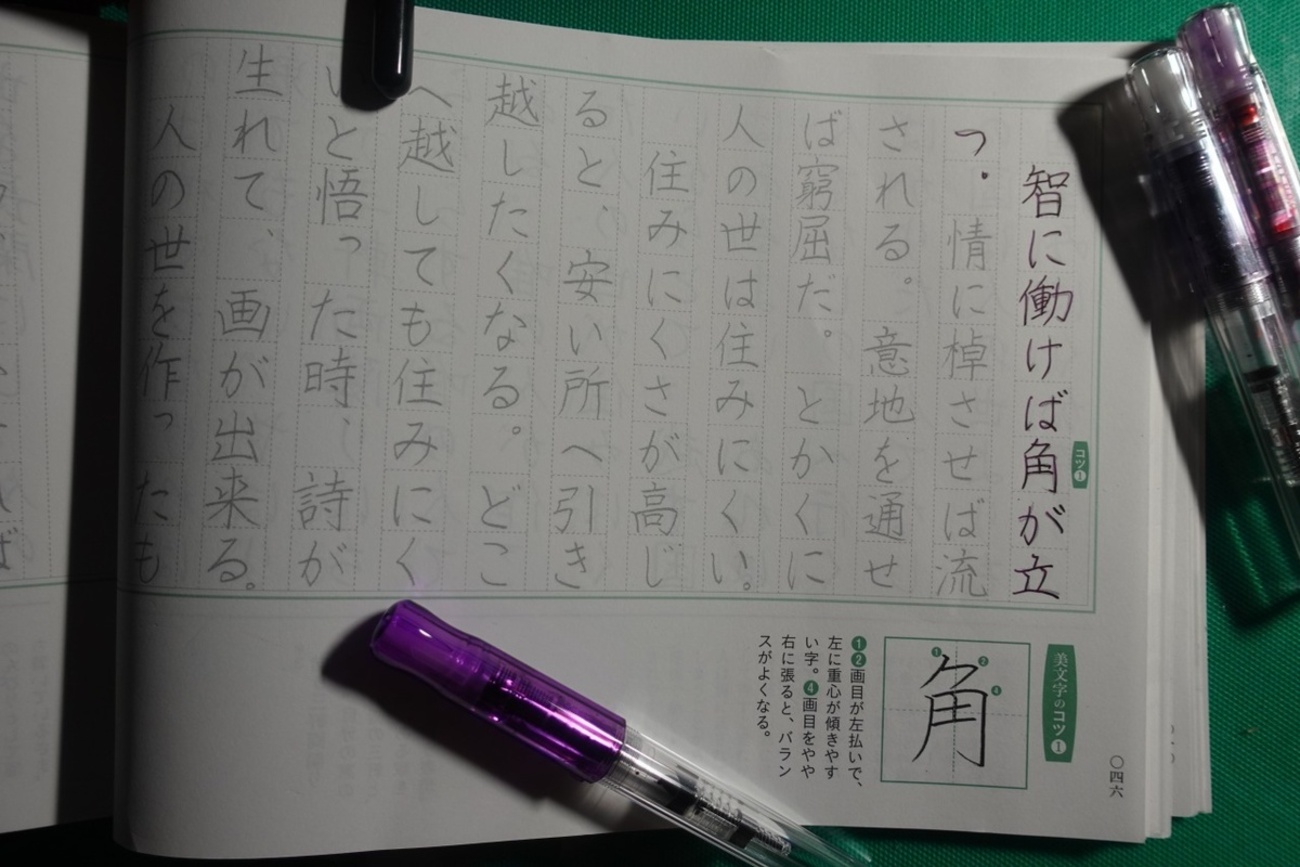 智に働けば角が立
つ。情に棹させば流
される。意地を通せ
ば窮屈だ。とかくに
人の世は住みにくい。
住みにくさが高じ
ると、安い所へ引き
越したくなる。どこ
へ越しても住みにく
いと悟った時、詩が
生れて、画が出来る。
人の世を作ったも
コツ❶
〇四六
美文字のコツ❶
角
❶
❷
❹
❶❷画目が左払いで、
左に重心が傾きやす
い字。❹画目をやや
右に張ると、バラン
スがよくなる。